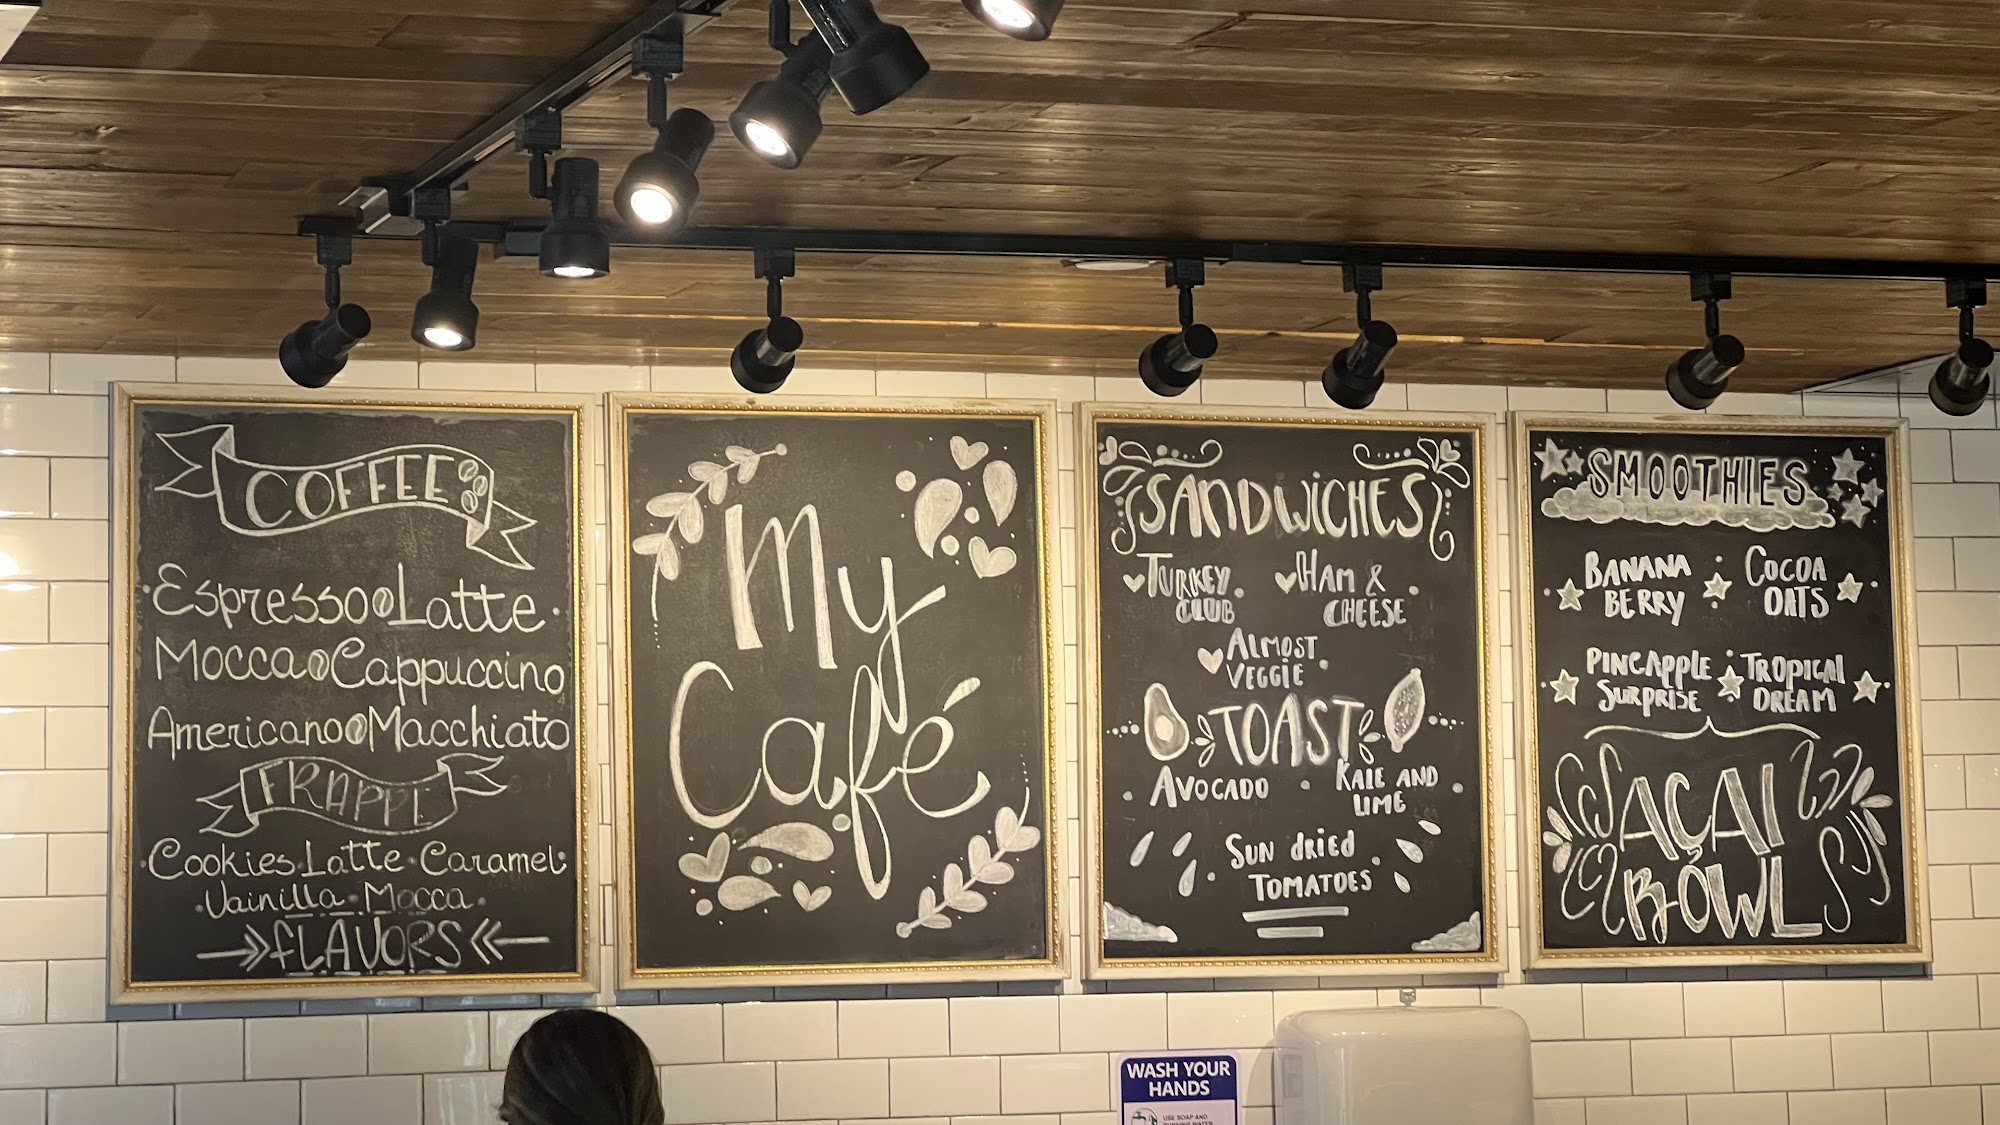 COFFEE
Espresso Latte
Mocca Cappuccino
Americano Macchiato
FRAPPE
Cookies · Latte · Caramel
· Vainilla · Mocca ·
FLAVORS
My
Café
SANDWICHES
TURKEY CLUB
HAM & CHEESE
ALMOST
VEGGIE
TOAST
AVOCADO
KALE AND LIME
SUN DRIED
TOMATOES
SMOOTHIES
BANANA BERRY
COCOA OATS
PINEAPPLE SURPRISE
TROPICAL DREAM
AÇAI
BOWL
WASH YOUR
HANDS
USE SOAP AND
RUNNING WATER